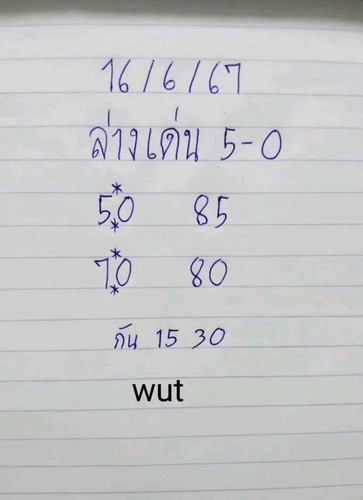 16/6/67
ล่างเด่น 5-0
5*0* 85
7*0* 80
กัน 15 30
wut